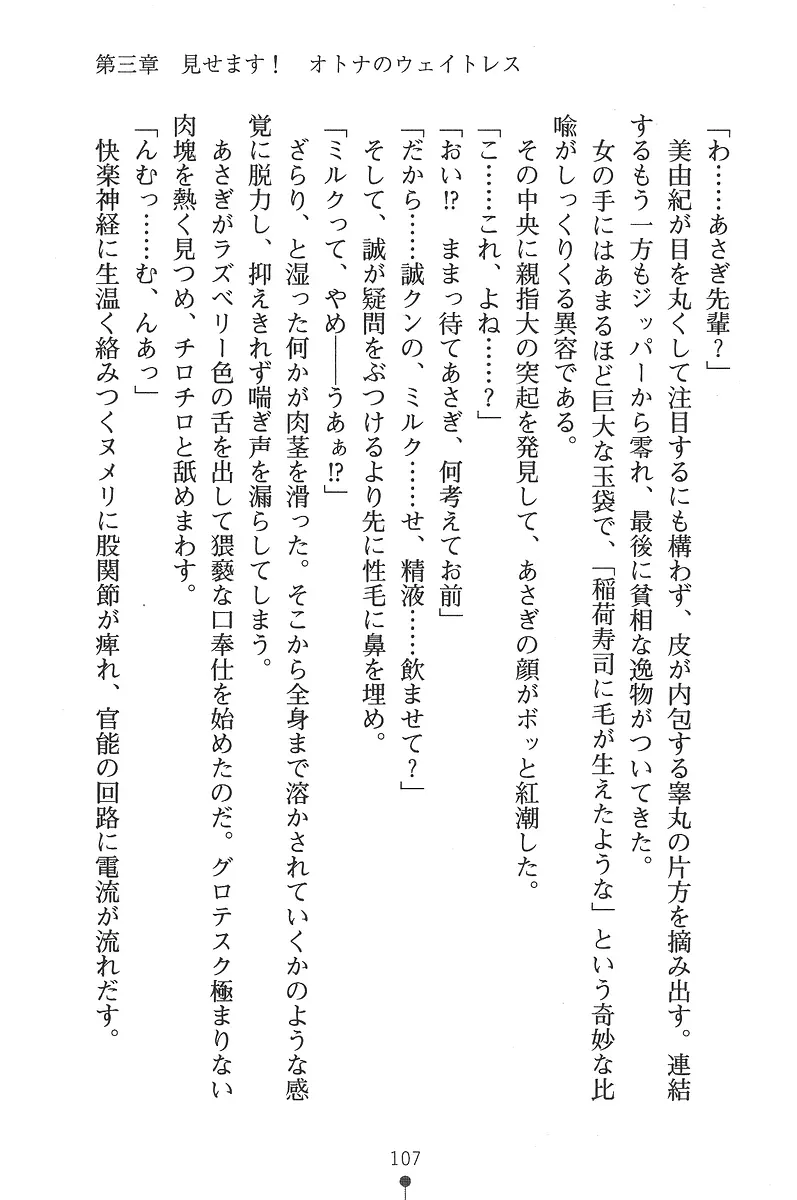 第三章　見せます！　オトナのウェイトレス
「わ……あさぎ先輩？」
美由紀が目を丸くして注目するにも構わず、皮が内包する睾丸の片方を摘み出す。連結
するもう一方もジッパーから零れ、最後に貧相な逸物がついてきた。
女の手にはあまるほど巨大な玉袋で、「稲荷寿司に毛が生えたような」という奇妙な比
喩がしっくりくる異容である。
その中央に親指大の突起を発見して、あさぎの顔がボッと紅潮した。
「こ……これ、よね……？」
「おい!?　ままっ待てあさぎ、何考えてお前」
「だから……誠クンの、ミルク……せ、精液……飲ませて？」
そして、誠が疑問をぶつけるより先に性毛に鼻を埋め。
「ミルクって、やめ――うあぁ!?」
ざらり、と湿った何かが肉茎を滑った。そこから全身まで溶かされていくかのような感
覚に脱力し、抑えきれず喘ぎ声を漏らしてしまう。
あさぎがラズベリー色の舌を出して猥褻な口奉仕を始めたのだ。グロテスク極まりない
肉塊を熱く見つめ、チロチロと舐めまわす。
「んむっ……む、んあっ」
快楽神経に生温く絡みつくヌメリに股関節が痺れ、官能の回路に電流が流れだす。
107